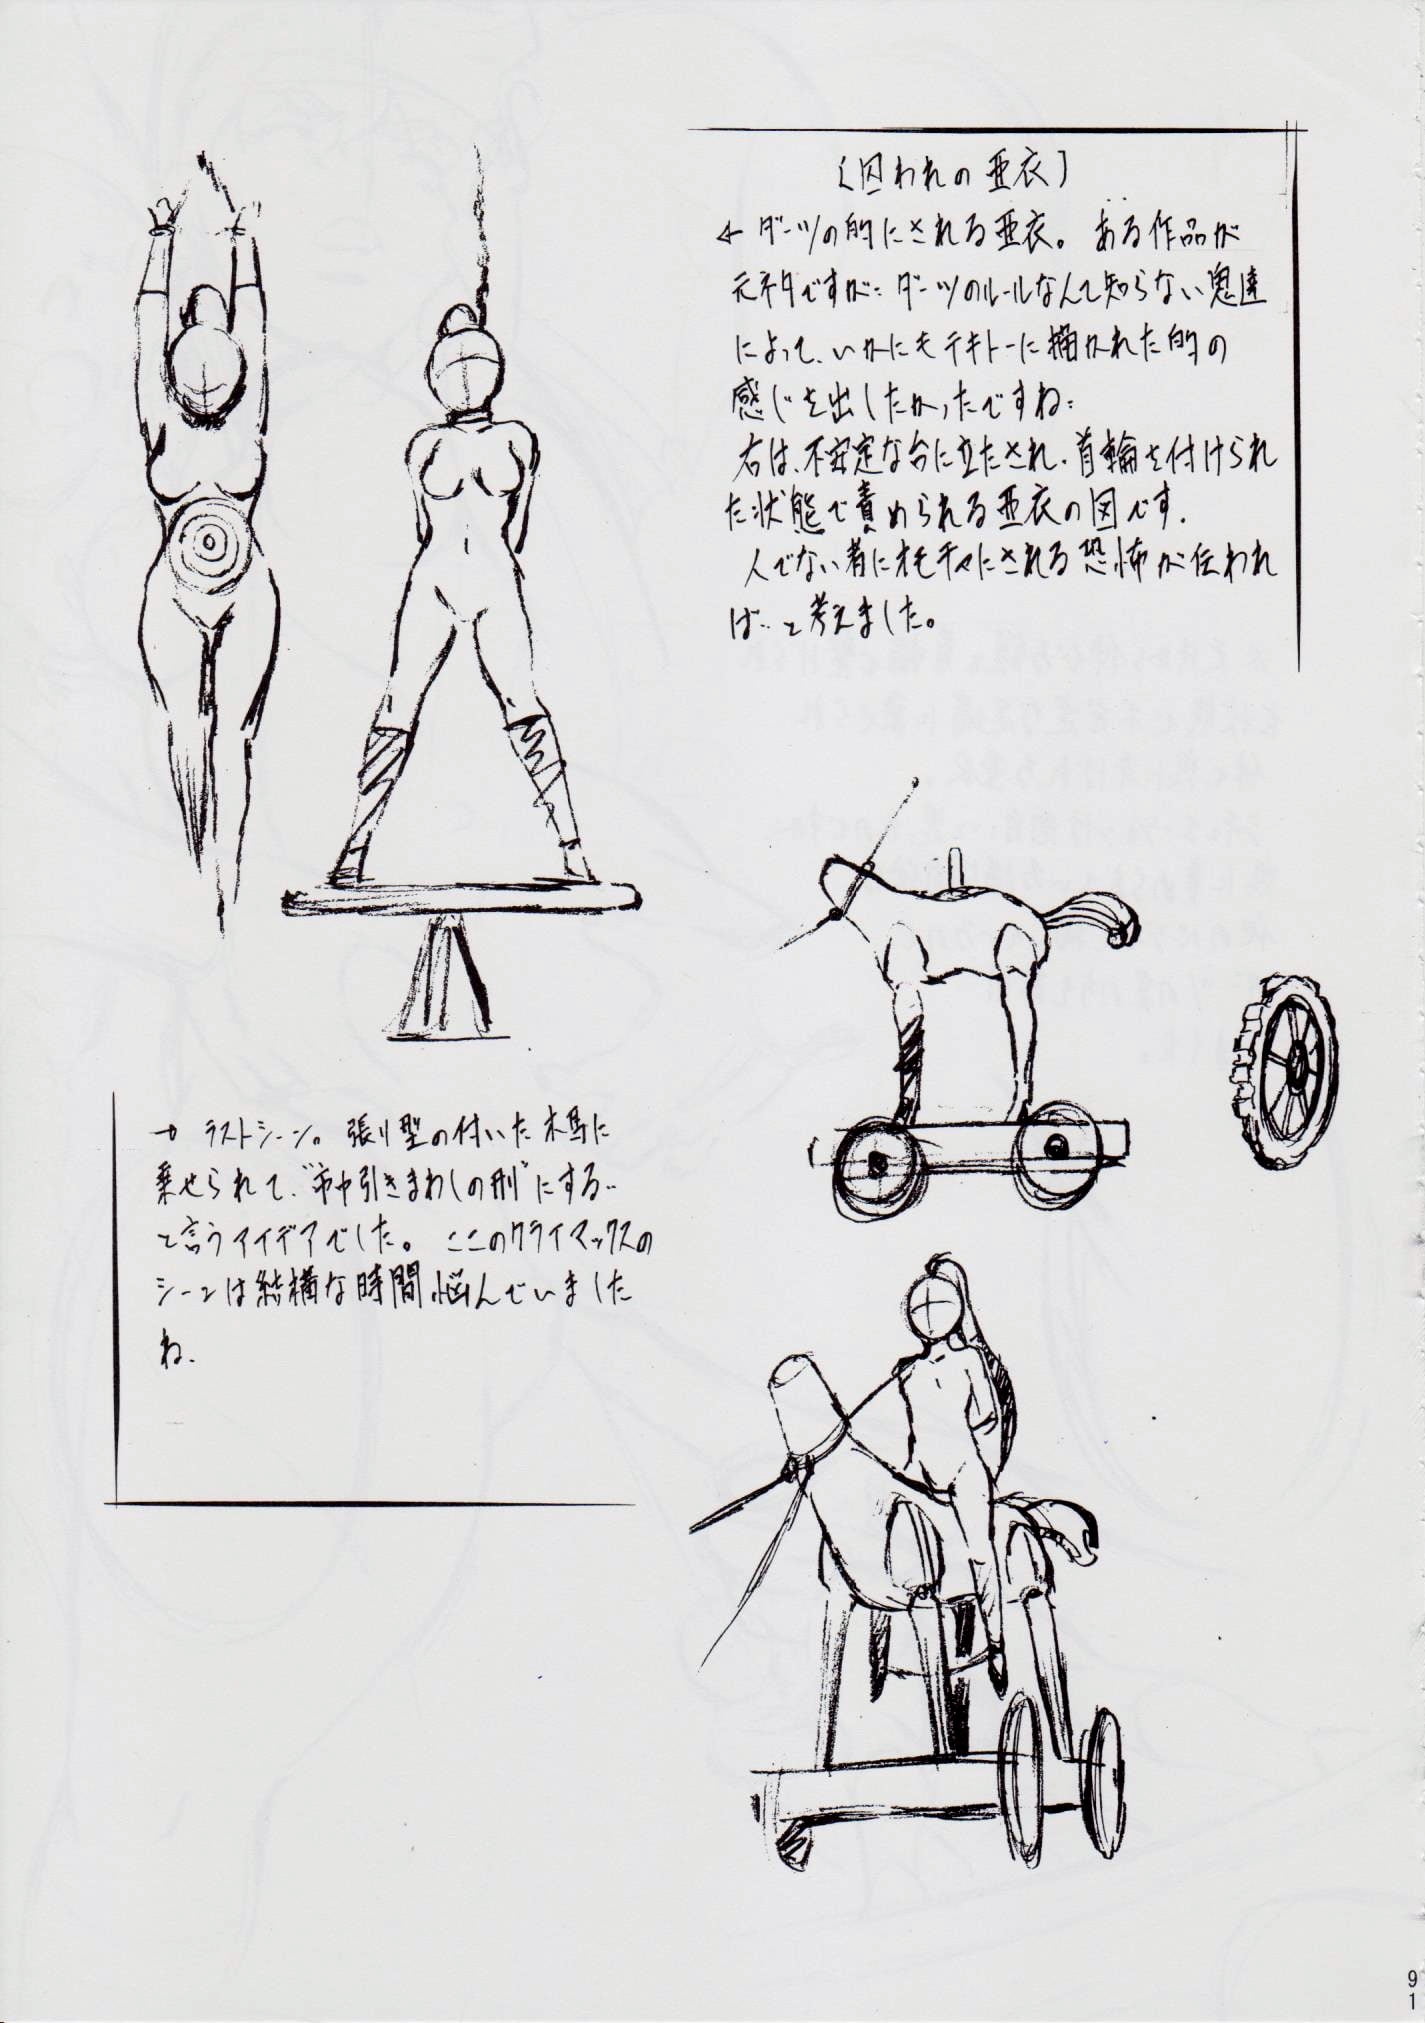 〔囚われの亜衣〕
← ダーツの的にされる亜衣。ある作品が
元ネタですが‥ダーツのルールなんて知らない鬼達
によって、いかにもテキトーに描かれた的の
感じを出したかったですね‥
右は、不安定な台に立たされ、首輪を付けられ
た状態で責められる亜衣の図です。
人でない者にオモチャにされる恐怖が伝われ
ば‥と考えました。
→ ラストシーン。張り型の付いた木馬に
乗せられて、"市中引きまわしの刑"にする‥
と言うアイデアでした。ここのクライマックスの
シーンは結構な時間悩んでいました
ね.
91